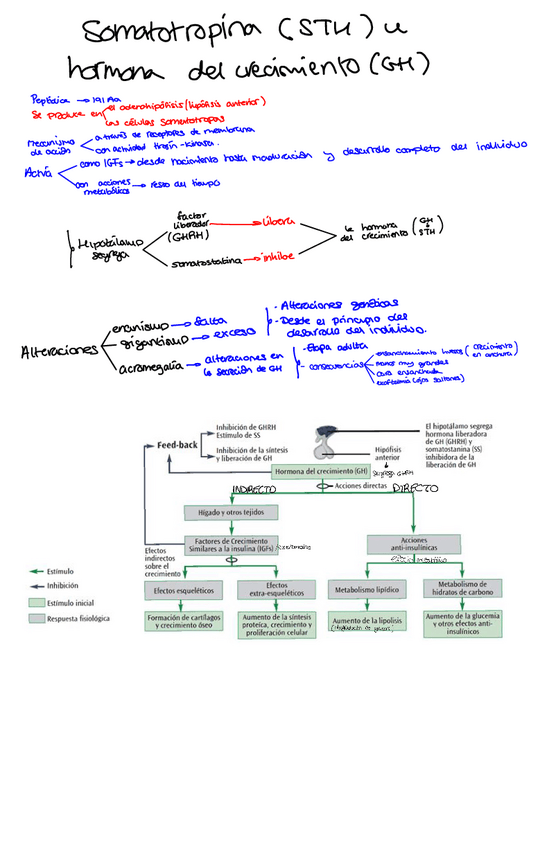 Somatotropina (STH) u
hormona del crecimiento (GH)
Peptídica → 191 Aa
Se produce en el adenohipófisis (hipófisis anterior)
las células somatotropas
Mecanismo de acción
a través de receptores de membrana
con actividad tirosín-kinasa.
Actúa
como IGFs → desde nacimiento hasta maduración y desarrollo completo del individuo
con acciones metabólicas → resto del tiempo
Hipotálamo segrega
factor liberador (GHRH) → libera
somatostatina → inhibe
la hormona del crecimiento (GH STH)
Alteraciones
enanismo → falta
gigantismo → exceso
- Alteraciones genéticas
- Desde el principio del
desarrollo del individuo.
acromegalia → alteraciones en
la secreción de GH
- Etapa adulta
- consecuencias
ensanchamiento huesos (crecimiento en anchura)
manos muy grandes
cara ensanchada
exoftalmia (ojos saltones)
Feed-back
Inhibición de GHRH
Estímulo de SS
Inhibición de la síntesis
y liberación de GH
Hipófisis
anterior
El hipotálamo segrega
hormona liberadora
de GH (GHRH) y
somatostanina (SS)
inhibidora de la
liberación de GH
Hormona del crecimiento (GH)
INDIRECTO
Acciones directas
DIRECTO
Hígado y otros tejidos
Factores de Crecimiento
Similares a la insulina (IGFs)
Acciones
anti-insulínicas
Efectos
indirectos
sobre el
crecimiento
Efectos esqueléticos
Efectos
extra-esqueléticos
Metabolismo lipídico
Metabolismo de
hidratos de carbono
Formación de cartílagos
y crecimiento óseo
Aumento de la síntesis
proteica, crecimiento y
proliferación celular
Aumento de la lipolisis
Aumento de la glucemia
y otros efectos anti-
insulínicos
Estímulo
Inhibición
Estímulo inicial
Respuesta fisiológica